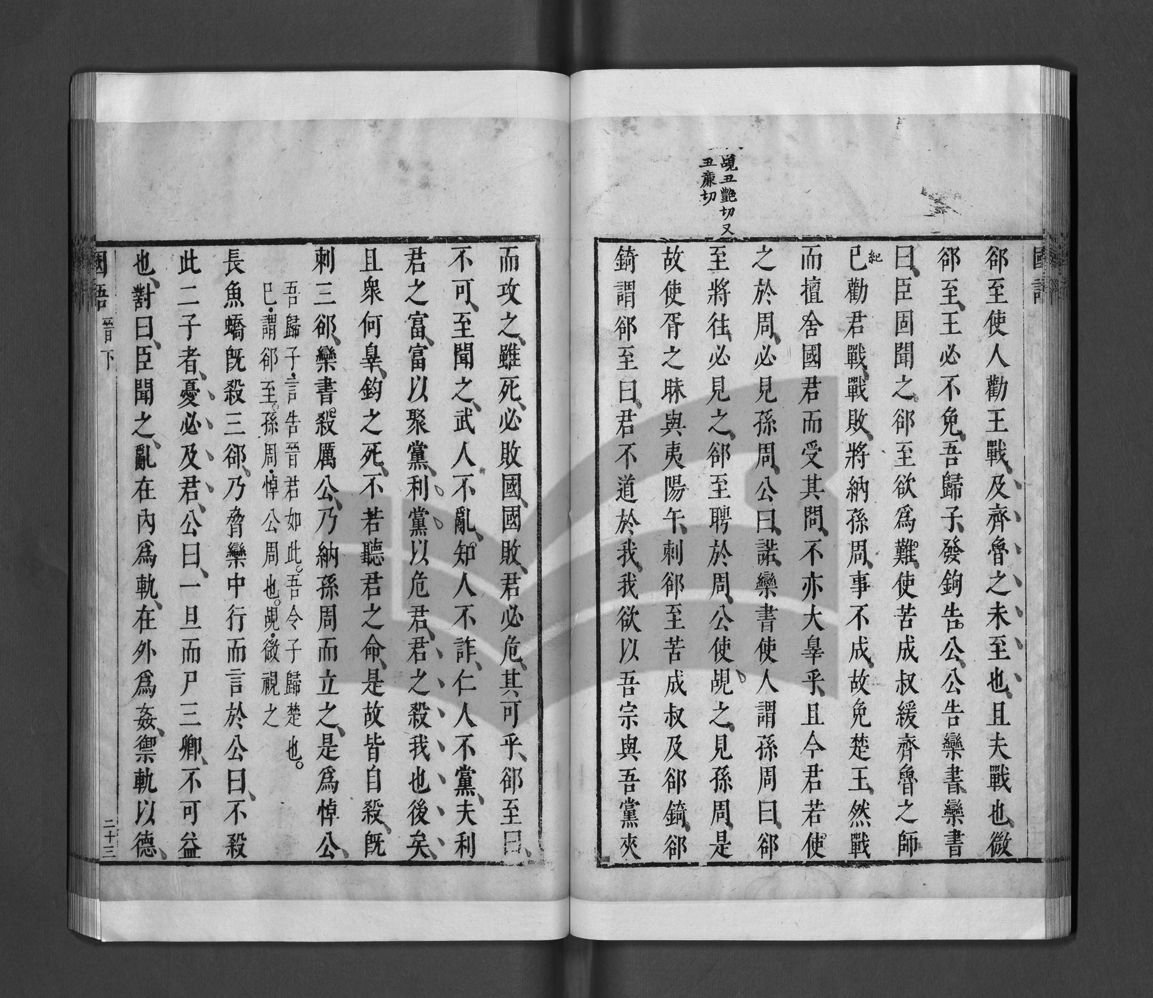 覘丑艷切又
丑廉切
國語
郤至使人勸王戰、及齊魯之未至也、且夫戰也、微
郤至、王必不免、吾歸子、發鉤告公、公告欒書、欒書
曰、臣固聞之、郤至欲爲難、使苦成叔緩齊魯之師
己紀勸君戰、戰敗、將納孫周、事不成、故免楚王、然戰
而擅舍國君而受其問、不亦大辠乎、且今君若使
之於周、必見孫周、公曰、諾、欒書使人謂孫周曰、郤
至將往、必見之、郤至聘於周、公使覘之、見孫周、是
故使胥之昧與夷陽午、刺郤至苦成叔及郤錡、郤
錡謂郤至曰、君不道於我、我欲以吾宗與吾黨夾
而攻之、雖死、必敗國、國敗、君必危、其可乎、郤至曰、
不可、至聞之、武人不亂、知人不詐、仁人不黨、夫利
君之富、富以聚黨、利黨以危君、君之殺我也後矣、
且衆何辠、鈞之死、不若聽君之命、是故皆自殺、既
刺三郤、欒書殺厲公、乃納孫周而立之、是爲悼公、
吾歸子、言告晉君如此。吾令子歸楚也。
己、謂郤至。孫周、悼公周也。覘、微視之
長魚蟜既殺三郤、乃脅欒中行而言於公曰、不殺
此二子者、憂必及君、公曰、一旦而尸三卿、不可益
也、對曰、臣聞之、亂在內爲軌、在外爲姦、禦軌以德、
國語 晉下 二十三